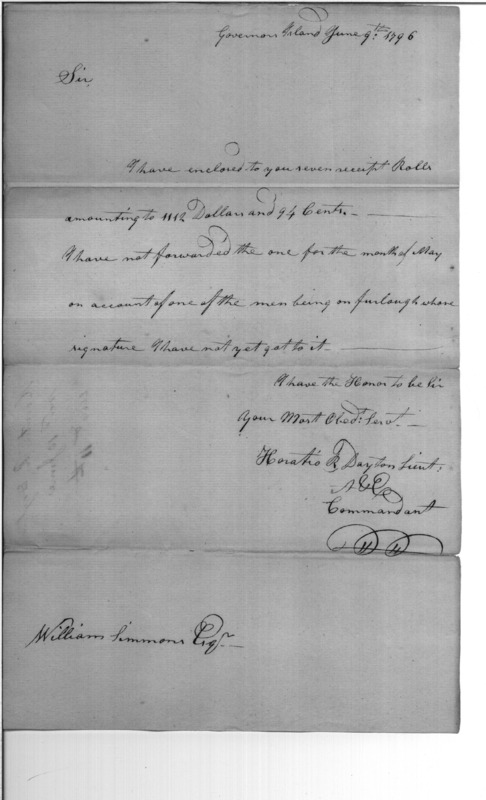 Governors Island June 9th. 1796
Sir,
I have enclosed to you seven receipt Rolls
amounting to 1112 Dollars and 94 Cents.
I have not forwarded the one for the month of May
on account of one of the men being on furlough whose
signature I have not yet got to it
I have the Honor to be Sir
Your Most Obedt. Servt.
Horatio R Dayton Lieut:
A & E
Commandant
William Simmons Esqr.